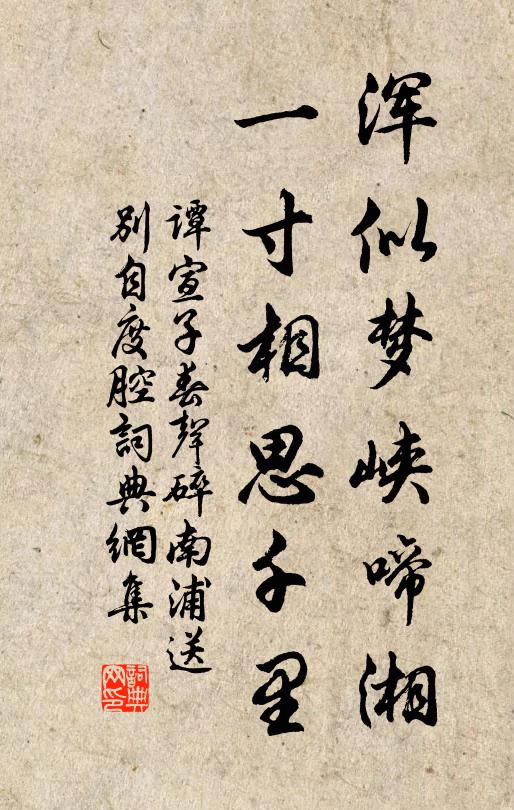 浑似梦峡啼湘
一寸相思千里
譚宣子春聲碎南浦送
别自度腔詞典網集
詞典网印